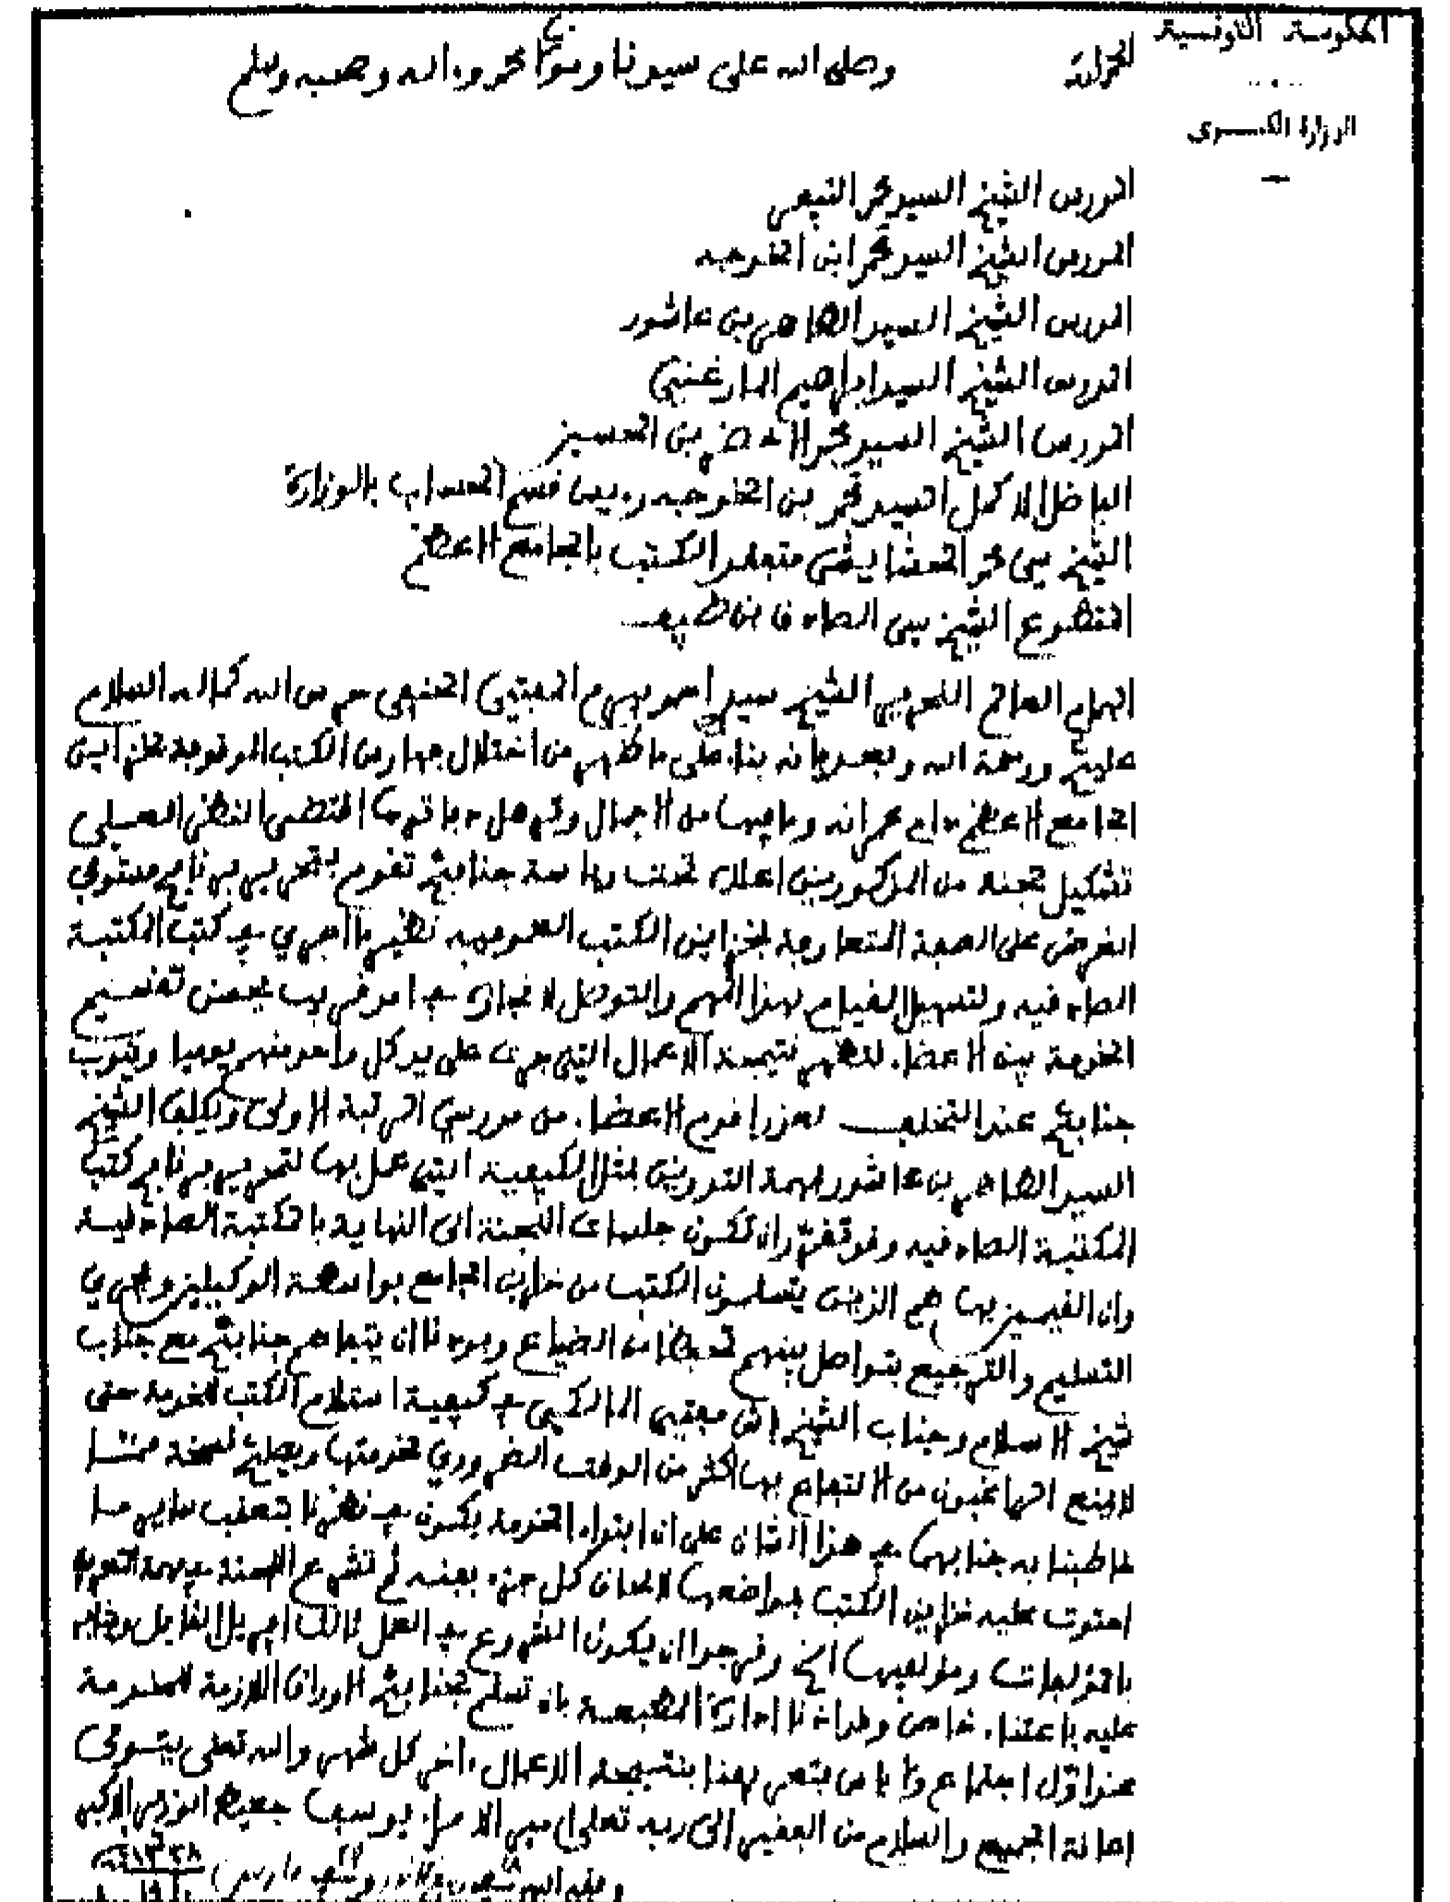 الحكومة التونسية
الحمد لله وصلى الله على سيدنا ومولانا محمد وءاله وصحبه وسلم
الوزارة الكبرى
المدرس الشيخ السيد محمد النيفر
المدرس الشيخ السيد محمد ابن الخوجه
المدرس الشيخ السيد الطاهر بن عاشور
المدرس الشيخ السيد ابراهيم المارغني
المدرس الشيخ السيد محمد الاخضر بن الحسين
الفاضل الاكمل السيد محمد بن الخوجه رءيس قسم الحساب بالوزارة
الشيخ سي محمد الحشايشي متفقد الكتب بالجامع الاعظم
المتطوع الشيخ سي الصادق بن
الهمام العالم النحرير الشيخ سيدي احمد بيرم المفتي الحنفي حرس الله كماله السلام
عليكم ورحمة الله وبعد فانه بناء على ما ظهر من اختلال فهارس الكتب الموقوفة بخزاين
الجامع الاعظم دام عمرانه وما فيها من الاجمال اقتضى النظر العملي
تشكيل لجنة من المذكورين اعلاه تحت رءاسة جنابكم تقوم بتحرير برنامج مستوفي
الغرض على الصفة المتعارفة بخزاين الكتب العمومية نظير ما اجري في كتب المكتبة
الصادقية ولتسهيل القيام بهذا المهم والتوصل لانجازه في امد قريب يحسن تقسيم
الخدمة بين الاعضاء لتظهر نتيجة الاعمال التي جرت على يد كل واحد منهم يوميا وينوب
جنابكم عند التخلف لعذر اقدم الاعضاء من مدرسي الرتبة الاولى ويكلف الشيخ
السيد الطاهر بن عاشور بمهمة التدوين بمثل الكيفية التي عمل بها لتحرير برنامج كتب
المكتبة الصادقية وقد تقرر ان تكون جلسات اللجنة الى النهاية بالمكتبة الصادقية
وان القيمين بها هم الذين يتسلمون الكتب من خزاين الجامع بواسطة الوكيلين ويجري
التسليم والترجيع بتواصل بينهم تحفظا من الضياع وبودنا ان يتفاهم جنابكم مع جناب
شيخ الاسلام وجناب الشيخ باش مفتي المالكي في كيفية استلام الكتب للخدمة حتى
لا يمنع من الانتفاع بها اكثر من الوقت الضروري لخدمتها ويصلكم نسخة مما
خاطبنا به جنابهما في هذا الشان على ان ابتداء الخدمة يكون في نظرنا بتعقب ساير ما
احتوت عليه خزاين الكتب بمواضعها لالحاق كل جزء بجنسه ثم تشرع اللجنة في مهمة التعريف
بالمؤلفات ومؤلفيها الخ ونرجوا ان يكون الشروع في العمل ثالث افريل القابل
عليه باعتناء خاص وقد اذنا ادارة المطبعة بان تسلم لجنابكم الاوراق اللازمة للخدمة
عند اول اجتماع ولا باس بتعريفنا بنتيجة الاعمال ءاخر كل شهر والله تعلى يتولى
اعانة الجميع والسلام من الفقير الى ربه تعلى امير الامراء يوسف جعيط الوزير الاكبر